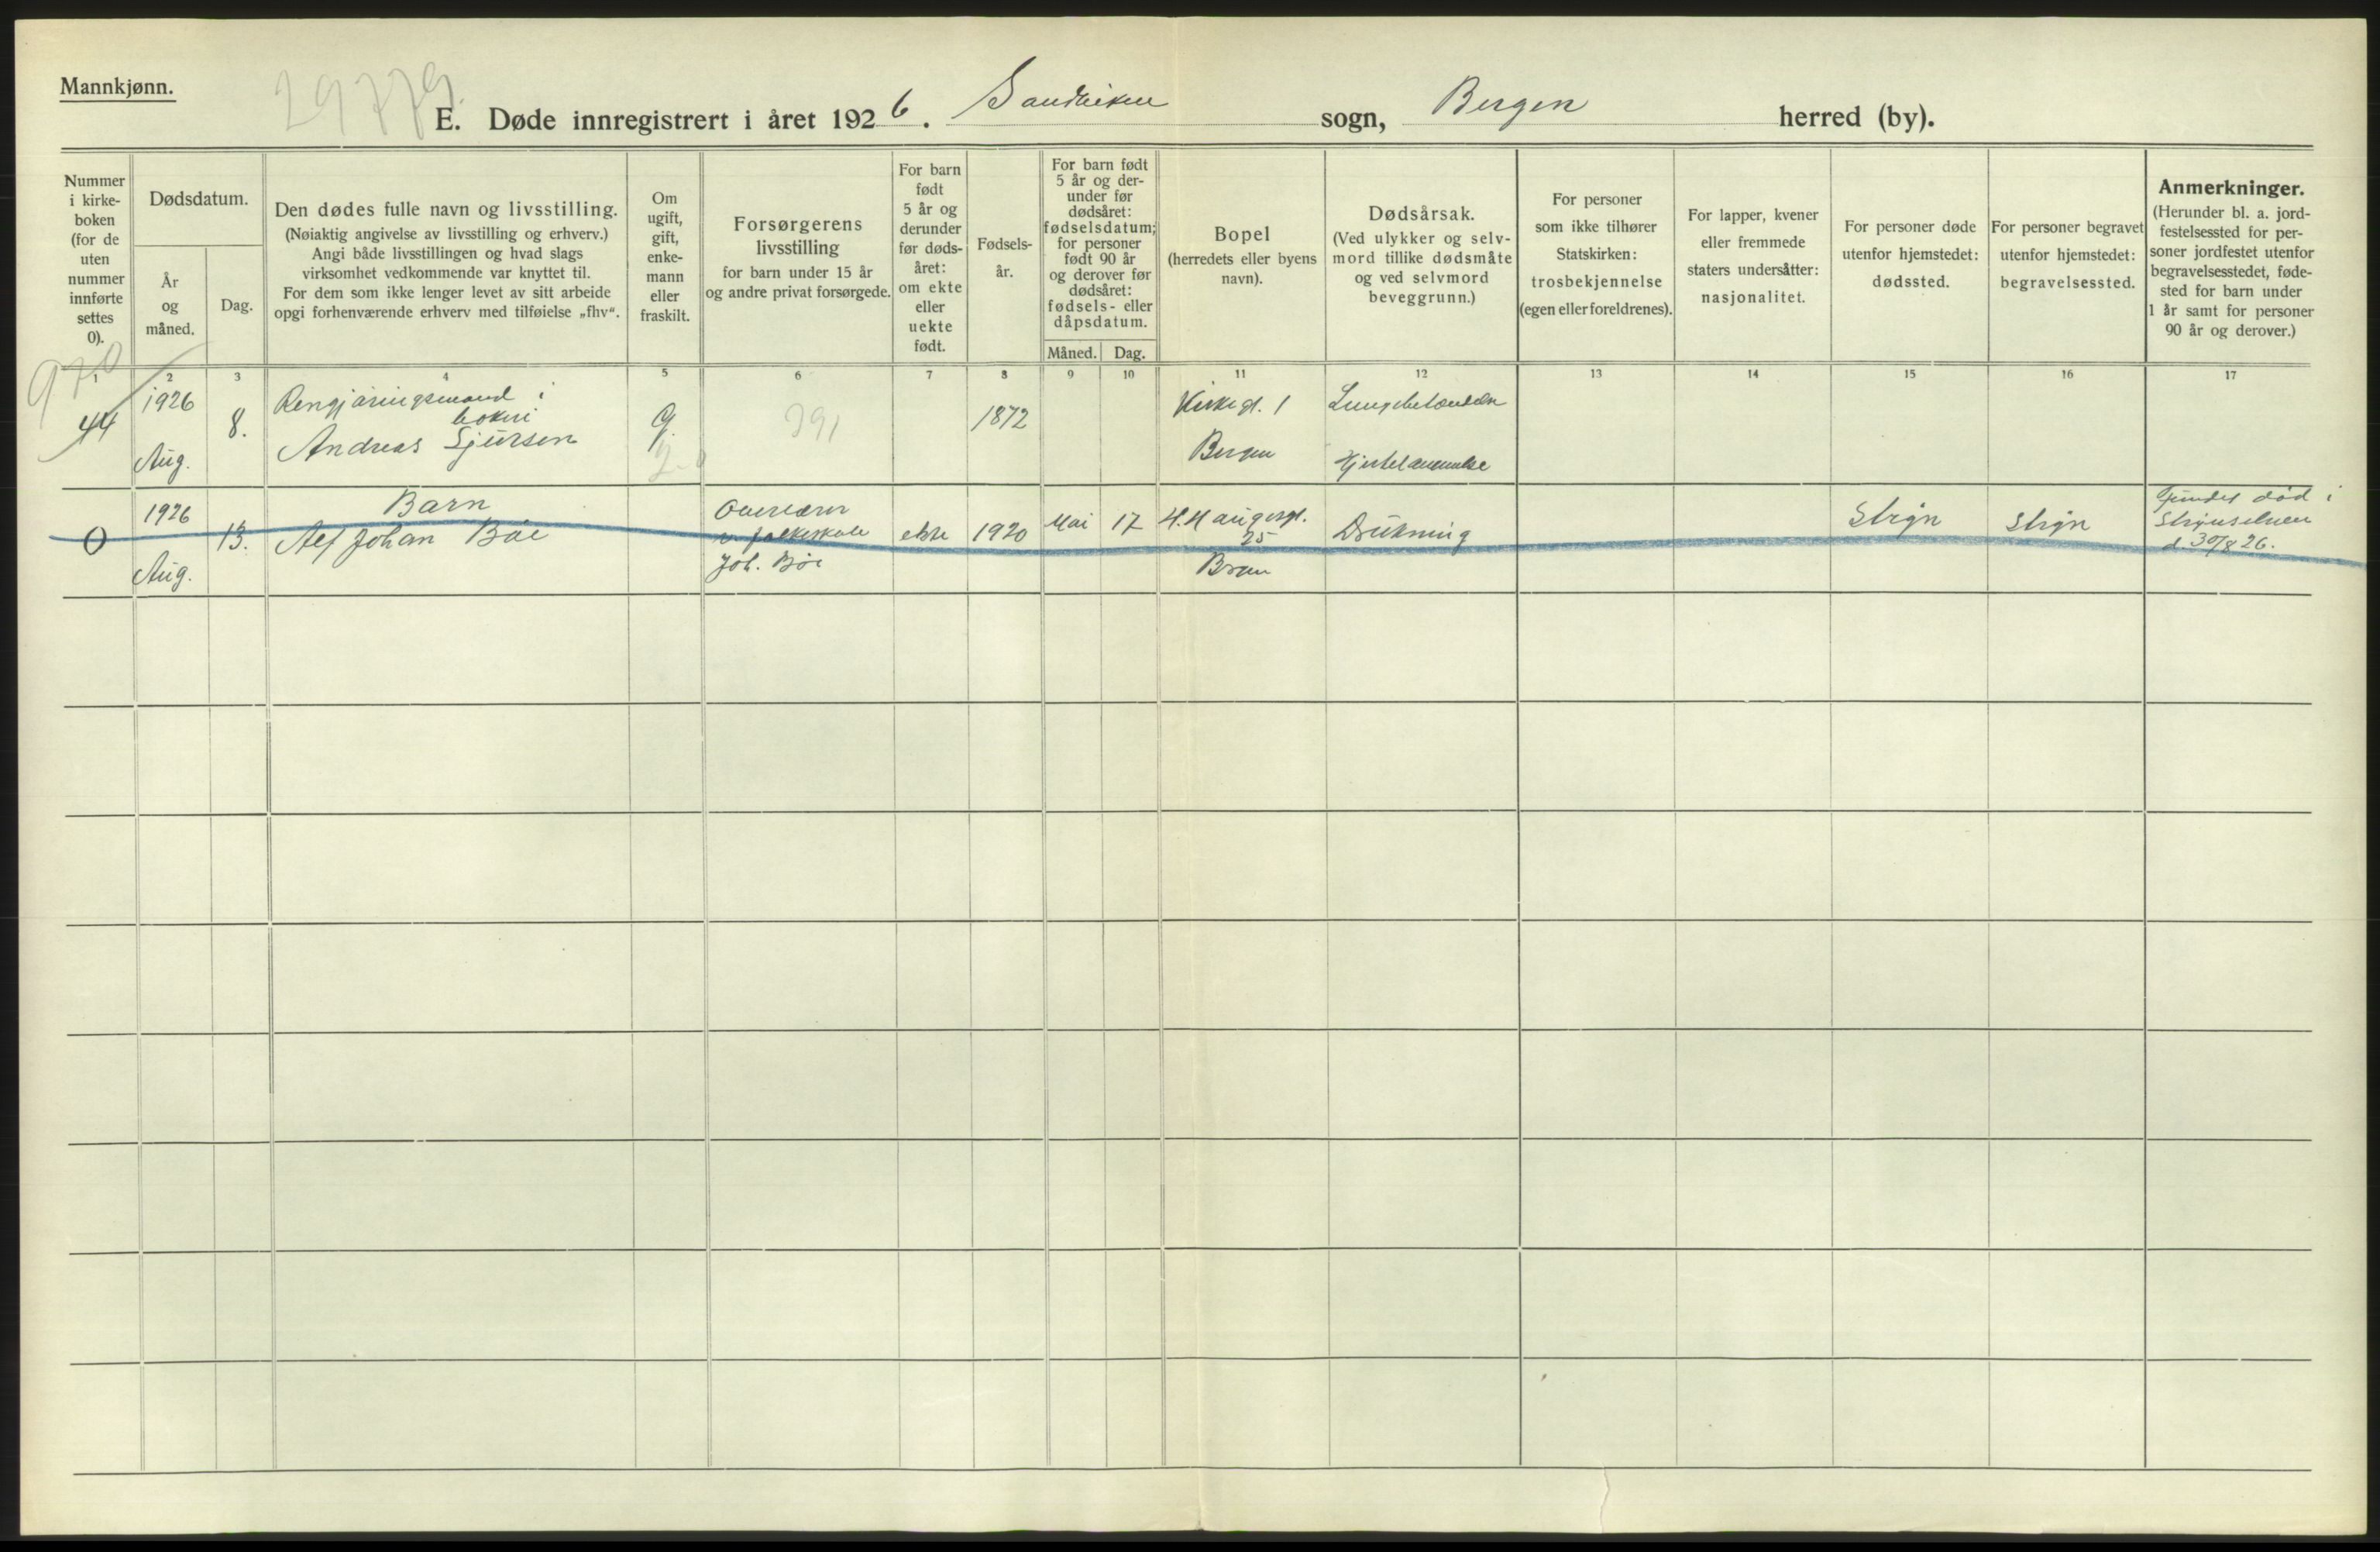 Mannkjønn.
29779.
E. Døde innregistrert i året 1926. Sandviken sogn, Bergen herred (by).
Nummer
i kirke-
boken
(for de
uten
nummer
innførte
settes
0).
Dødsdatum.
År
og
måned.
Dag.
Den dødes fulle navn og livsstilling.
(Nøiaktig angivelse av livsstilling og erhverv.)
Angi både livsstillingen og hvad slags
virksomhet vedkommende var knyttet til.
For dem som ikke lenger levet av sitt arbeide
opgi forhenværende erhverv med tilføielse „fhv“.
Om
ugift,
gift,
enke-
mann
eller
fraskilt.
Forsørgerens
livsstilling
for barn under 15 år
og andre privat forsørgede.
For barn
født
5 år og
derunder
før døds-
året:
om ekte
eller
uekte
født.
Fødsels-
år.
For barn født
5 år og der-
under før
dødsåret:
fødselsdatum;
for personer
født 90 år
og derover før
dødsåret:
fødsels- eller
dåpsdatum.
Måned. Dag.
Bopel
(herredets eller byens
navn).
Dødsårsak.
(Ved ulykker og selv-
mord tillike dødsmåte
og ved selvmord
beveggrunn.)
For personer
som ikke tilhører
Statskirken:
trosbekjennelse
(egen eller foreldrenes).
For lapper, kvener
eller fremmede
staters undersåtter:
nasjonalitet.
For personer døde
utenfor hjemstedet:
dødssted.
For personer begravet
utenfor hjemstedet:
begravelsessted.
Anmerkninger.
(Herunder bl. a. jord-
festelsessted for per-
soner jordfestet utenfor
begravelsesstedet, føde-
sted for barn under
1 år samt for personer
90 år og derover.)
1 2 3 4 5 6 7 8 9 10 11 12 13 14 15 16 17
970
44
1926
Aug.
8.
Rengjøringsmand i
bokeri
Andreas Sjursen
g.
391
1872
Kirkegt. 1
Bergen
Lungebetændelse
Hjertelammelse
0
1926
Aug.
13.
Barn
Alf Johan Bøe
Overlærer
v. folkeskole
Joh. Bøe
ekte
1920
Mai
17
H. Haugesgt.
25
Bergen
Drukning
Stryn
Stryn
Fundet død i
Strynselven
d. 30/8 26.